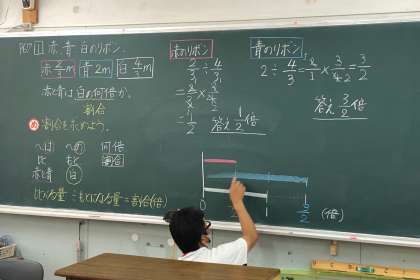 P27 1 赤、青、白のリボン。
赤 2/3 m 青 2m 白 4/3 m
赤と青は白の何倍か。
割合
め 割合を求めよう。
〜は 〜の 何倍
比 もと 割合
赤と青 白
比べる量÷もとになる量=割合(倍)
赤のリボン
2/3 ÷ 4/3
= 2/3 × 3/4
= 1/2 答え 1/2 倍
青のリボン
2 ÷ 4/3 = 2/1 × 3/4 = 3/2
答え 3/2 倍
0 1 (倍)